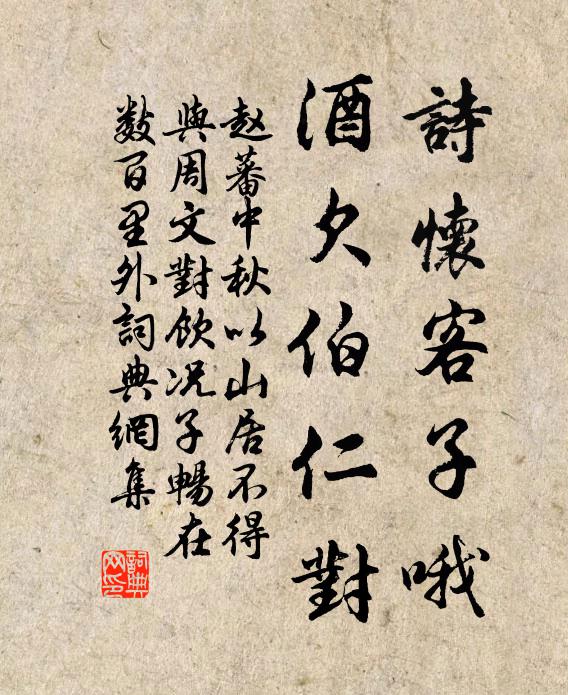 詩懷客子哦
酒欠伯仁對
赵蕃中秋以山居不得
與周文對飲况子暢在
数百里外詞典網集
詞典
网印